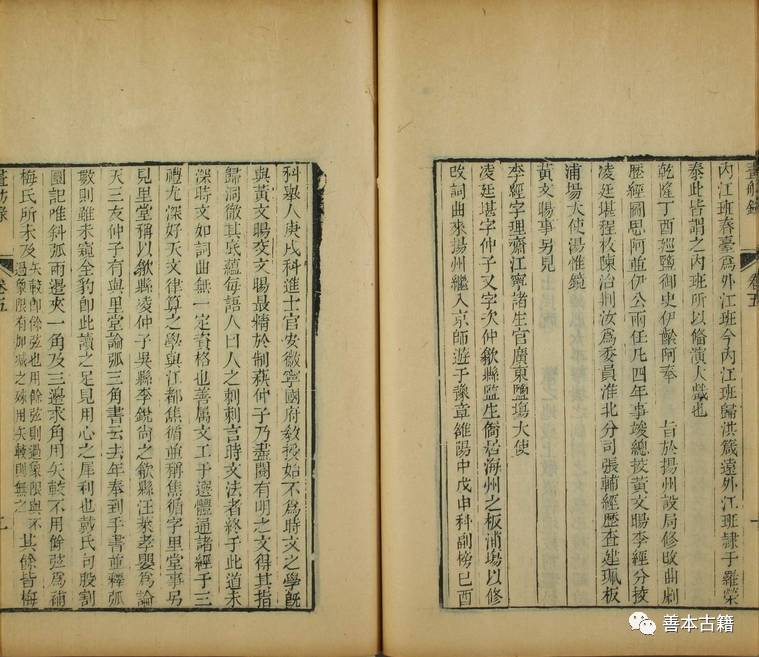 內江班春臺爲外江班今內江班歸洪箴遠外江班隸于羅榮
泰此皆謂之內班所以備演大戲也
乾隆丁酉經鹽御史伊齡阿奉 旨於揚州設局修改曲劇
歷經圖思阿並伊公兩任凡四年事竣總挍黃文暘李經分挍
凌廷堪程枚陳治荆汝爲委員淮北分司張輔經歷查建珮板
浦場大使湯惟鏡
黃文暘事另見
李經字理齋江寧諸生官廣東鹽場大使
凌廷堪字仲子又字次仲歙縣監生僑居海州之板浦場以修
改詞曲來揚州繼入京師遊于豫章雒陽中戊申科副榜巳酉
畫舫錄
卷五
科舉人庚戌科進士官安徽寧國府敎授始不爲時文之學旣
與黃文暘交文暘最精於制蓺仲子乃盡閱有明之文得其指
歸洞徹其底蘊每語人曰人之刺刺言時文法者終于此道未
深時文如詞曲無一定資格也善屬文工于選體通諸經于三
禮尤深好天文律算之學與江都焦循並稱焦循字里堂事另
見里堂稱以歙縣凌仲子吳縣李銳尚之歙縣汪萊孝嬰爲論
天三友仲子有與里堂論弧三角書云去年奉到手書並釋弧
數則雖未窺全豹卽此讀之足見用心之犀利也戴氏句股割
圜記唯斜弧兩邊夾一角及三邊求角用矢較不用餘弦爲補
梅氏所未及矢較卽餘弦也用餘弦則過象限與不
過象限有加減之殊用矢較則無之其餘皆梅
畫舫錄
卷五
善本古籍